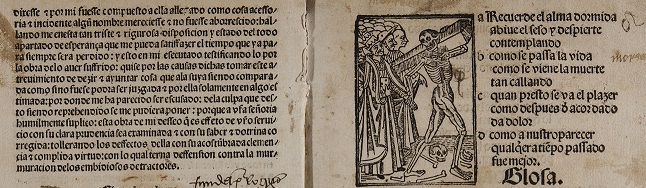 diresse ⁊ por mi fuesse compuesto a ella allegado como cosa acesso-
ria ⁊ incidente algũ nombre meresciesse ⁊ no fuesse aborrescido: hal-
lando me en esta tan triste ⁊ rigurosa disposicion y estado del todo
apartado de esperança que me pueda satisfazer el tiempo que ya pa-
ra siempre sera perdido: y esto en mi escutado testificando lo por
la obra delo auer suffrido: que si por las causas dichas tomar este a-
treuimiento de dezir ⁊ ayuntar cosa que ala suya siendo compara-
da como sino fuesse podra ser juzgada ⁊ por ella solamente en algo es
timada: por donde me ha parescido ser escusado: dela culpa que des-
to siendo reprehendido se me pudiera poner: porque a vr̃a señoria
humilmente suplico: esta obra de mi desseo q̃ es effeto de vr̃o serui-
cio con su clara prudencia sea examinada ⁊ con su saber ⁊ dotrina co
rregida: tollerando los deffectos della con su acostũbrada clemen-
cia ⁊ complida virtud: con lo qual terna deffension contra la mur-
muracion delos embidiosos ⁊ detractores.
a Recuerde el alma dormida
abiue el seso y despierte
contemplando
b como se passa la vida
como se viene la muerte
tan callando
c quan presto se va el plazer
como despues d' acordado
da dolor
d como a nuestro parecer
qualq̃era tiẽpo passado
fue mejor.
Glosa.